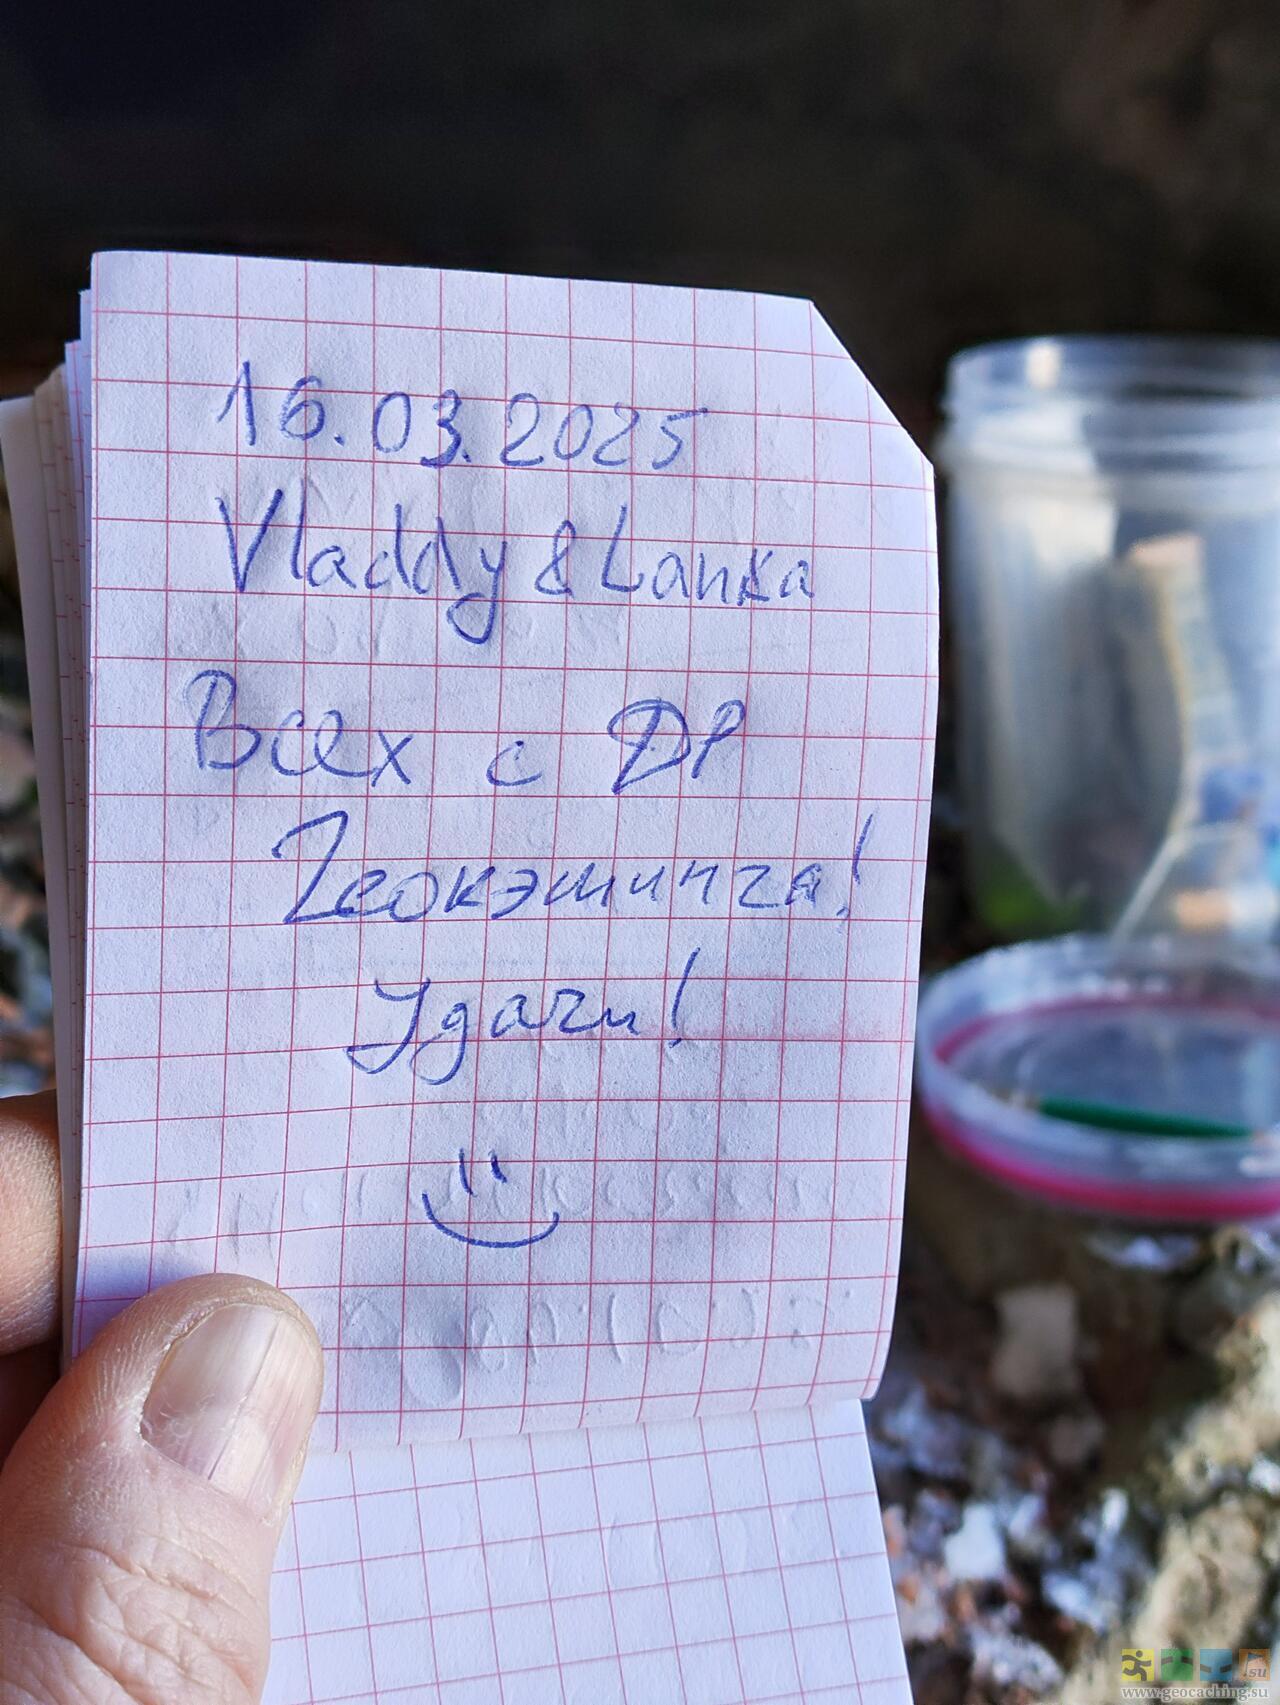 16.03.2025
Vladdy & Lanka
Всех с ДР
Геокэшинга!
Удачи!
su
www.geocaching.su